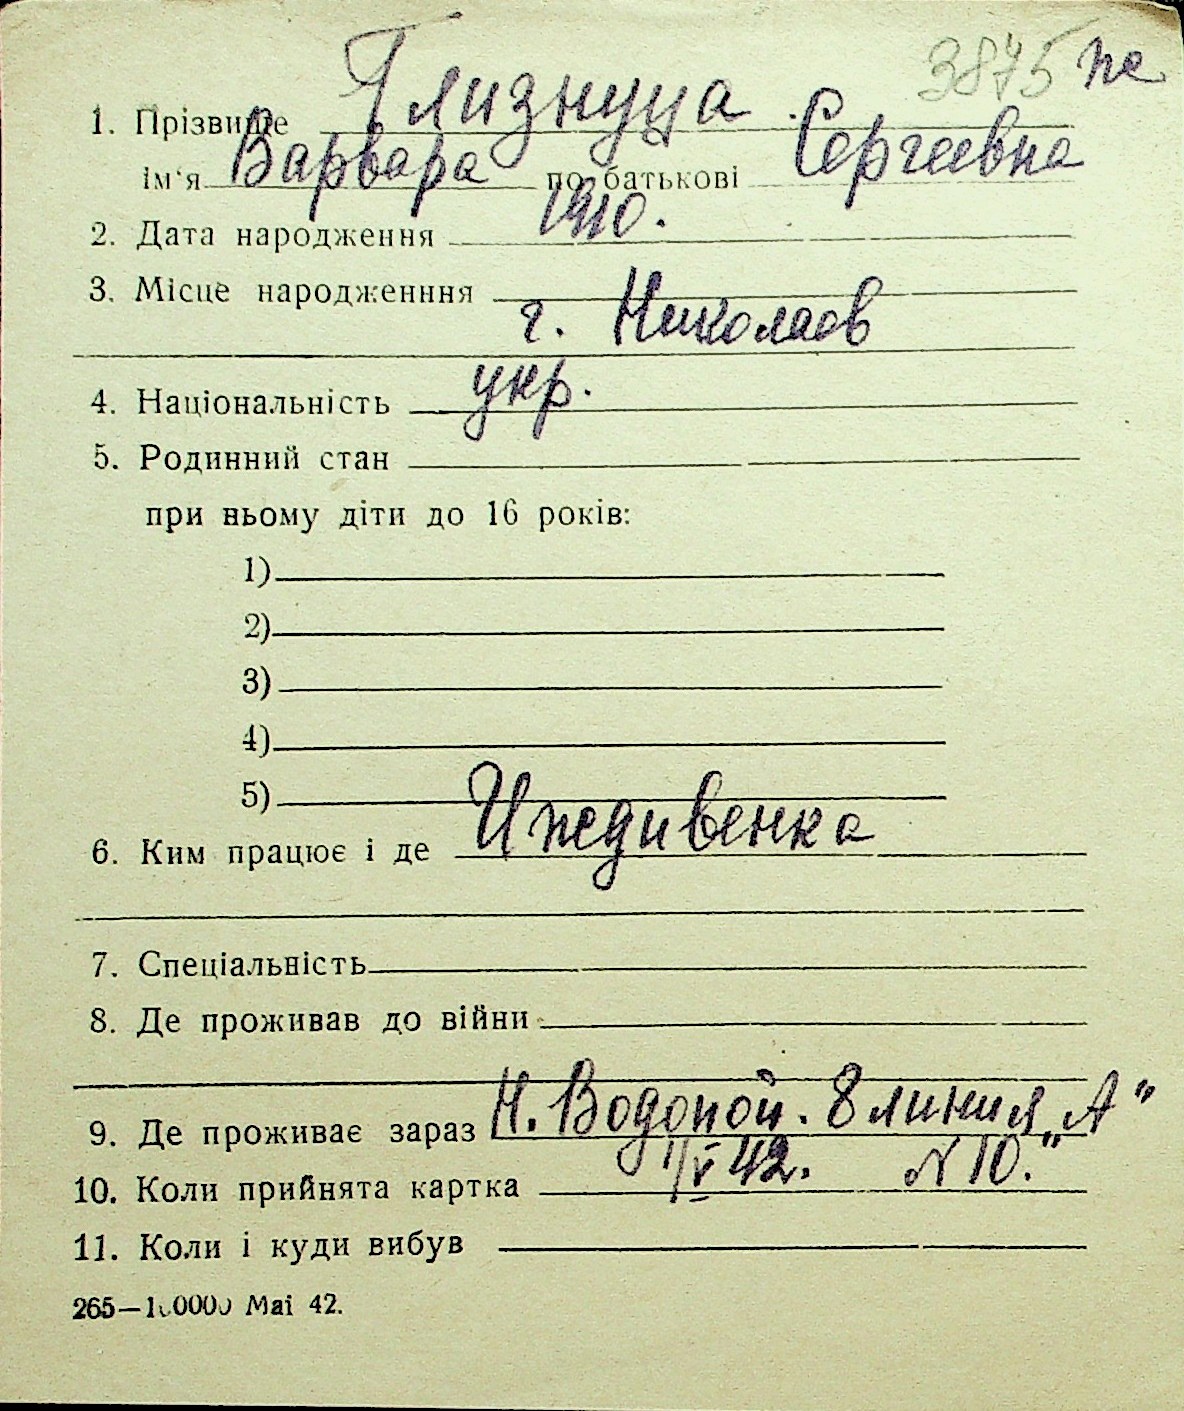 3875 пе
1. Прізвище Глизнуца
ім'я Варвара по батькові Сергеевна
2. Дата народження 1910.
3. Місце народженння
г. Николаев
4. Національність укр.
5. Родинний стан
при ньому діти до 16 років:
1)
2)
3)
4)
5)
6. Ким працює і де Иждивенка
7. Спеціальність
8. Де проживав до війни
9. Де проживає зараз Н. Водопой. 8 линия „А"
10. Коли прийнята картка 1/V 42. N 10."
11. Коли і куди вибув
265—100000 Mai 42.